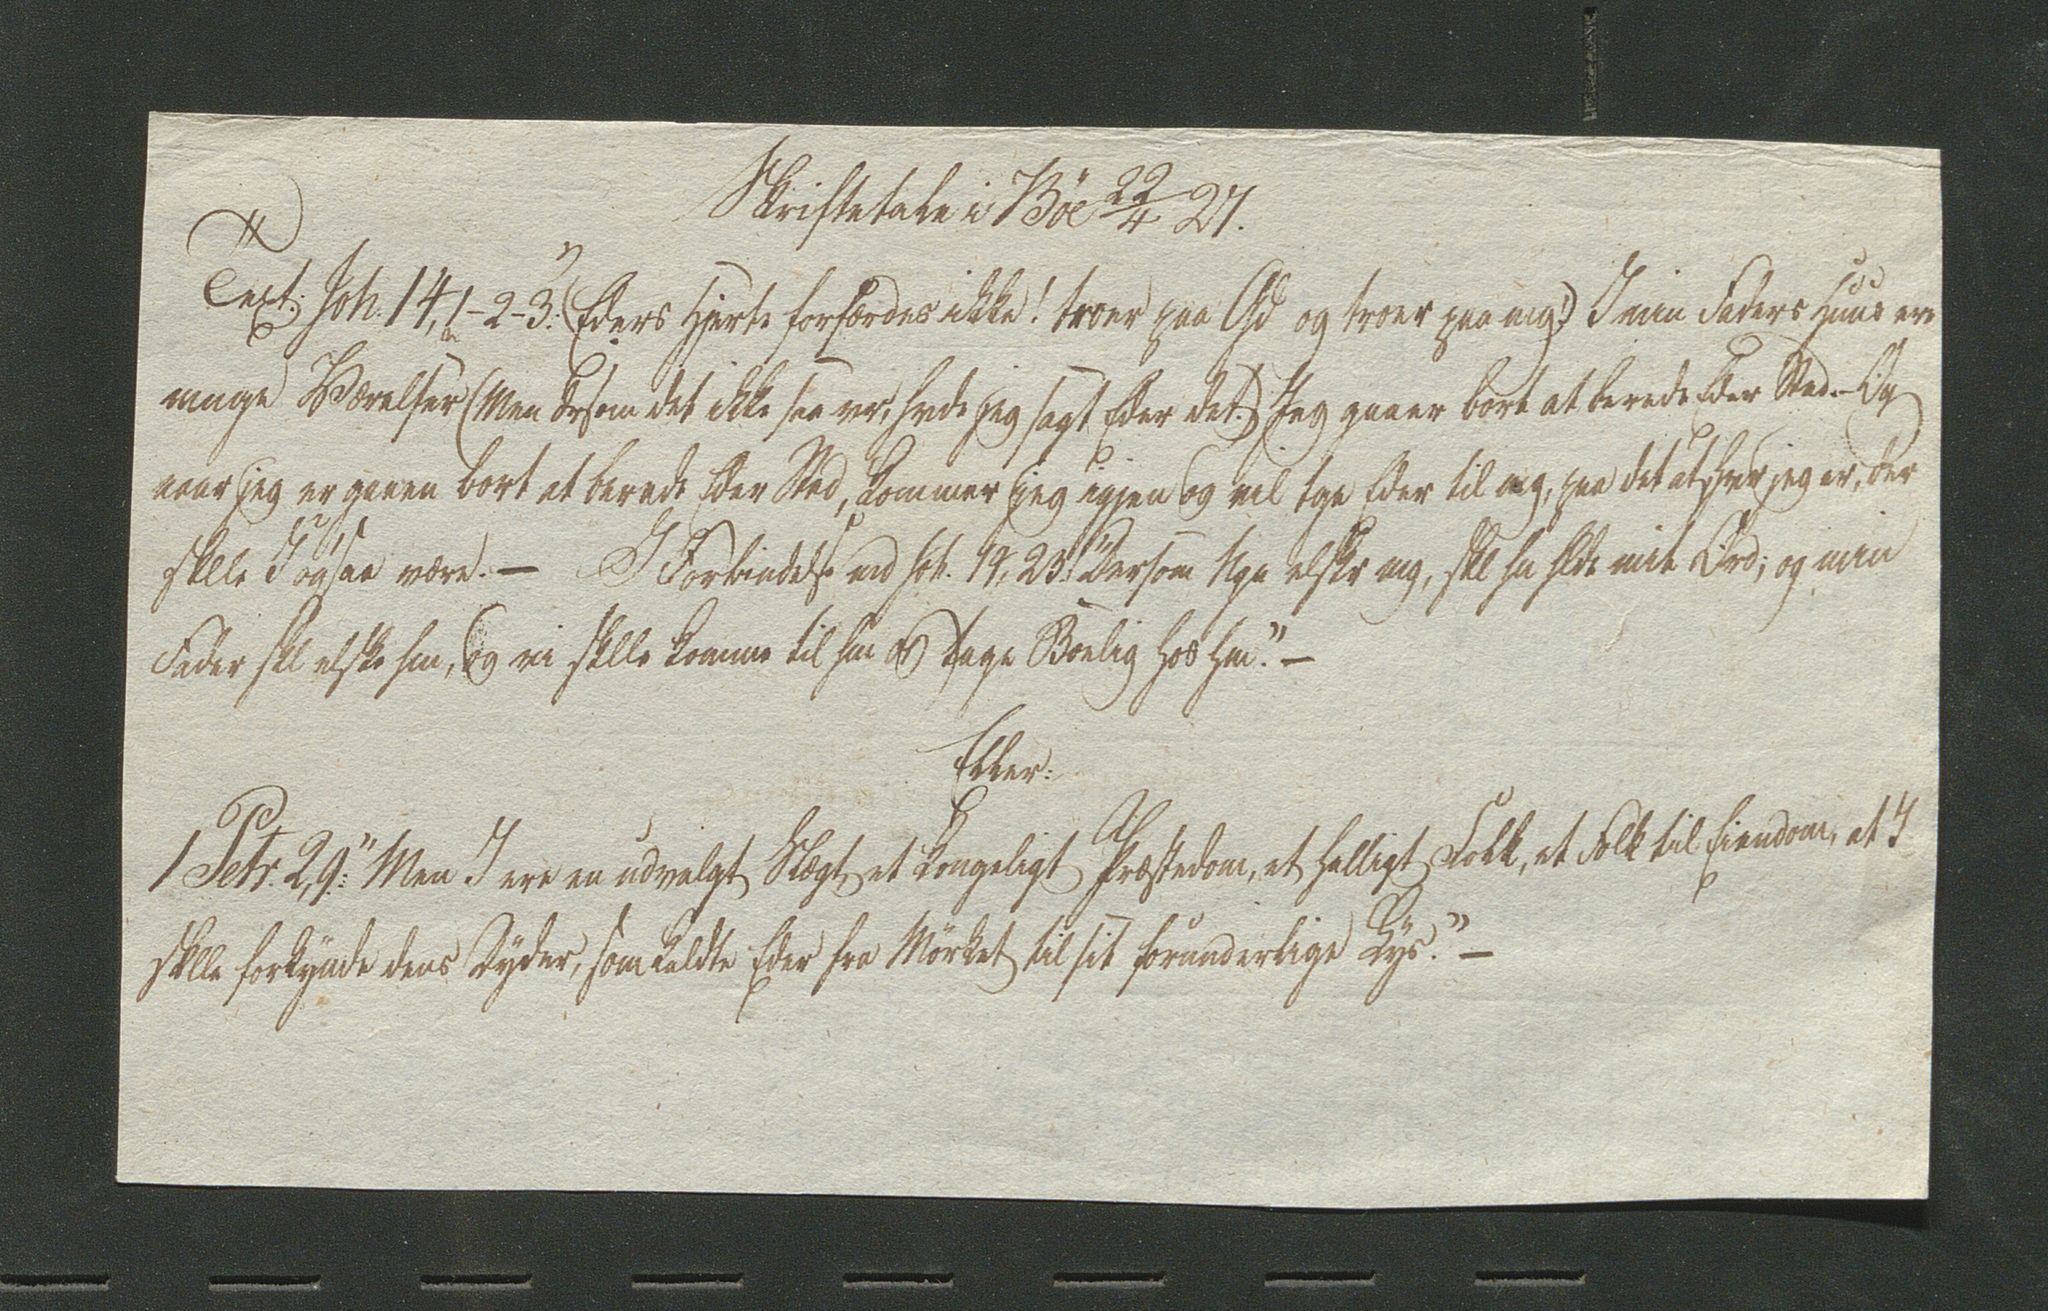 Skriftetale i Böe 22/4 27.
Text: Joh. 14, 1-2-3: "(Eders Hjerte forfærdes ikke! troer paa Gd og troer paa mg!) I min Faders Huus ere
mage Værelser (Men drsom det ikke saa vr, hvde jeg sagt Eder det.) Jeg gaaer bort at berede Eder Sted. - Og
naar jeg er gaaen bort at berede Eder Sted, kommer jeg igjen og vil tge Eder til mg, paa det at, hvr jeg er, der
sklle I ogsaa være. - I Forbindelse md Joh. 14, 23: "Dersom Ngn elskr mg, skl hn hlde mit Ord; og min
Fader skl elske hm, og vi sklle komme til hm og tage Boelig hos hm." -
Eller:
1 Petr. 2,9: "Men I ere en udvalgt Slægt, et kongeligt Præstedom, et helligt Folk, et Folk til Eiendom, at I
sklle forkynde dens Dyder, som kaldte Eder fra Mørket til sit forunderlige Lys." -